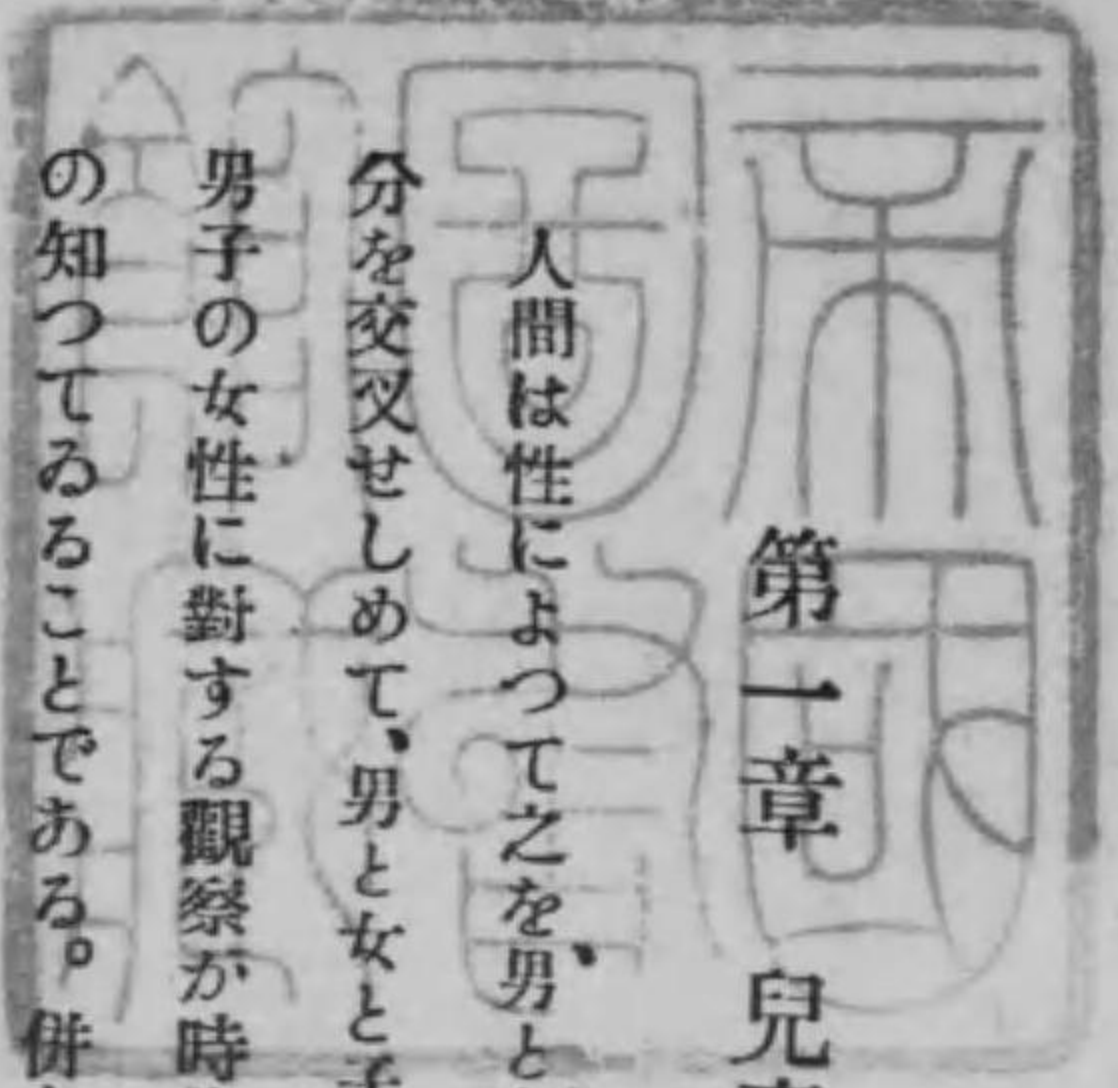 帝國
圖書
館藏
第一章 兒
人間は性によつて之を、男と
分を交叉せしめて、男と女と
男子の女性に對する觀察が時
の知つてゐることである。併